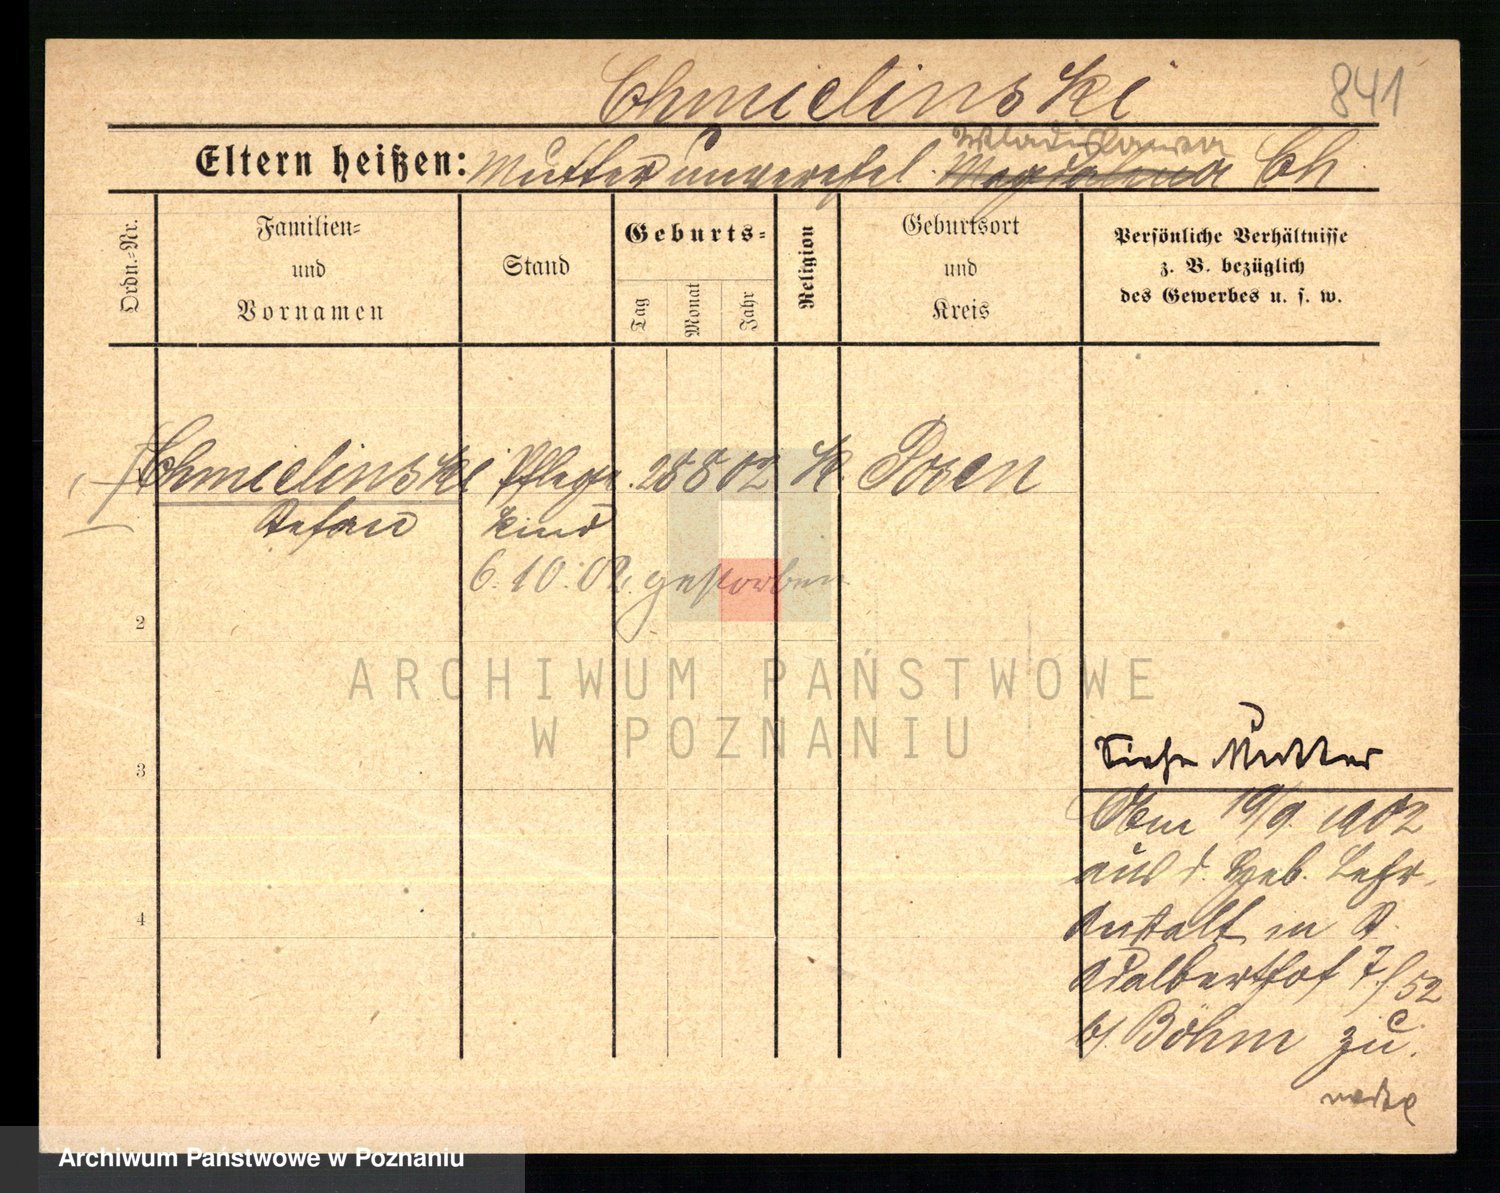 Chmielinski
841
Wladislawa
Eltern heißen: Mutter unverehel. Magdalena Ch
Ordn.-Nr.
Familien-
und
Vornamen
Stand
Geburts-
Tag
Monat
Jahr
Religion
Geburtsort
und
Kreis
Persönliche Verhältnisse
z. B. bezüglich
des Gewerbes u. s. w.
Chmielinski Pflege 28 8 02 K. Posen
Stefan Kind
6. 10. 02. gestorben
2
ARCHIWUM PAŃSTWOWE
W POZNANIU
3
Siehe Mutter
Am 19/9. 1902
aus d. Heb. Lehr-
Anstalt in St.
Adalberthof 7/52
b/ Böhm zu.
4
Archiwum Państwowe w Poznaniu